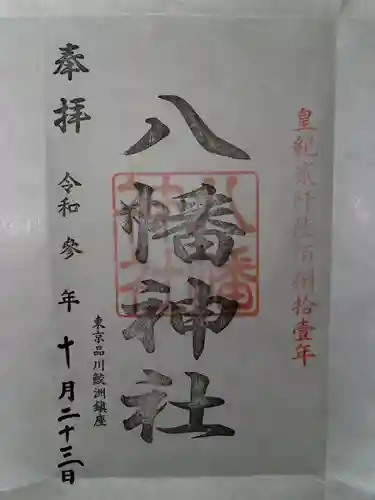 皇紀弐阡陸百卅拾壹年
八幡神社
八幡神社
東京品川鮫洲鎮座
奉拝
令和参年十月二十三日